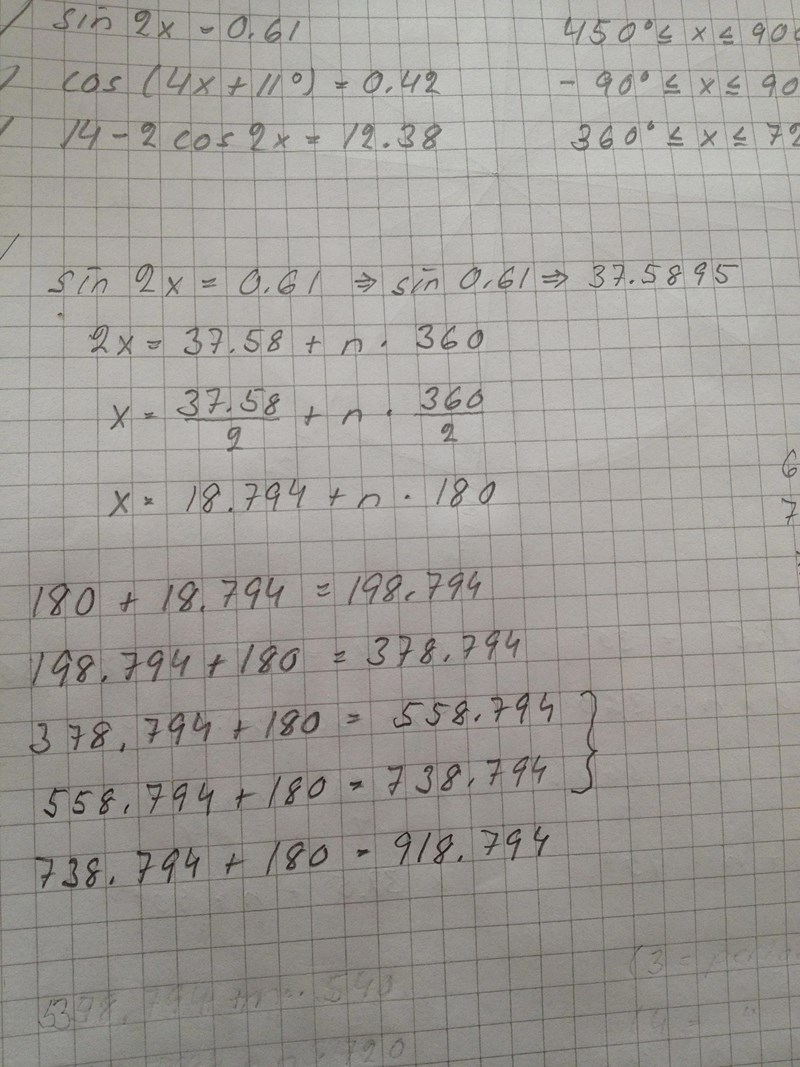 sin 2x = 0.61 450° ≤ x ≤ 900
cos (4x + 11°) = 0.42 - 90° ≤ x ≤ 90
14 - 2 cos 2x = 12.38 360° ≤ x ≤ 72
sin 2x = 0.61 ⇒ sin 0.61 ⇒ 37.5895
2x = 37.58 + n · 360
x = 37.58/2 + n · 360/2
x = 18.794 + n · 180
6
7
180 + 18.794 = 198.794
198.794 + 180 = 378.794
378.794 + 180 = 558.794 }
558.794 + 180 = 738.794
738.794 + 180 = 918.794